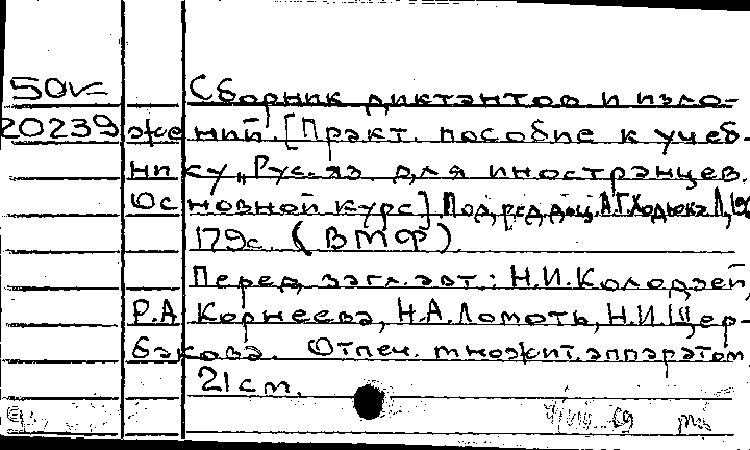 50к Сборник диктантов и изло-
20239 жений. [Практ. пособие к учеб-
нику „Рус. яз. для иностранцев.
Основной курс] Под ред. доц. А.Г. Ходюка Л,
179с. (ВМФ)
Перед загл. авт.: Н.И. Колодзей,
Р.А Корнеева, Н.А. Ломоть, Н.И. Щер-
бакова. Отпеч. множит. аппаратом
21 см.
69